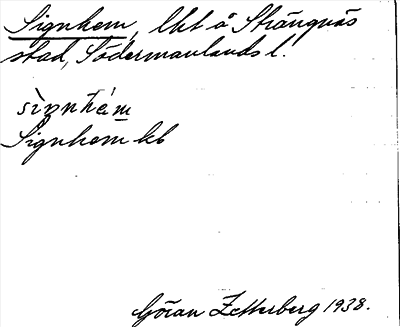 Signhem, lht å Strängnäs
stad, Södermanlands l.
sìnnhém
Signhem kb
Göran Zetterberg 1938.